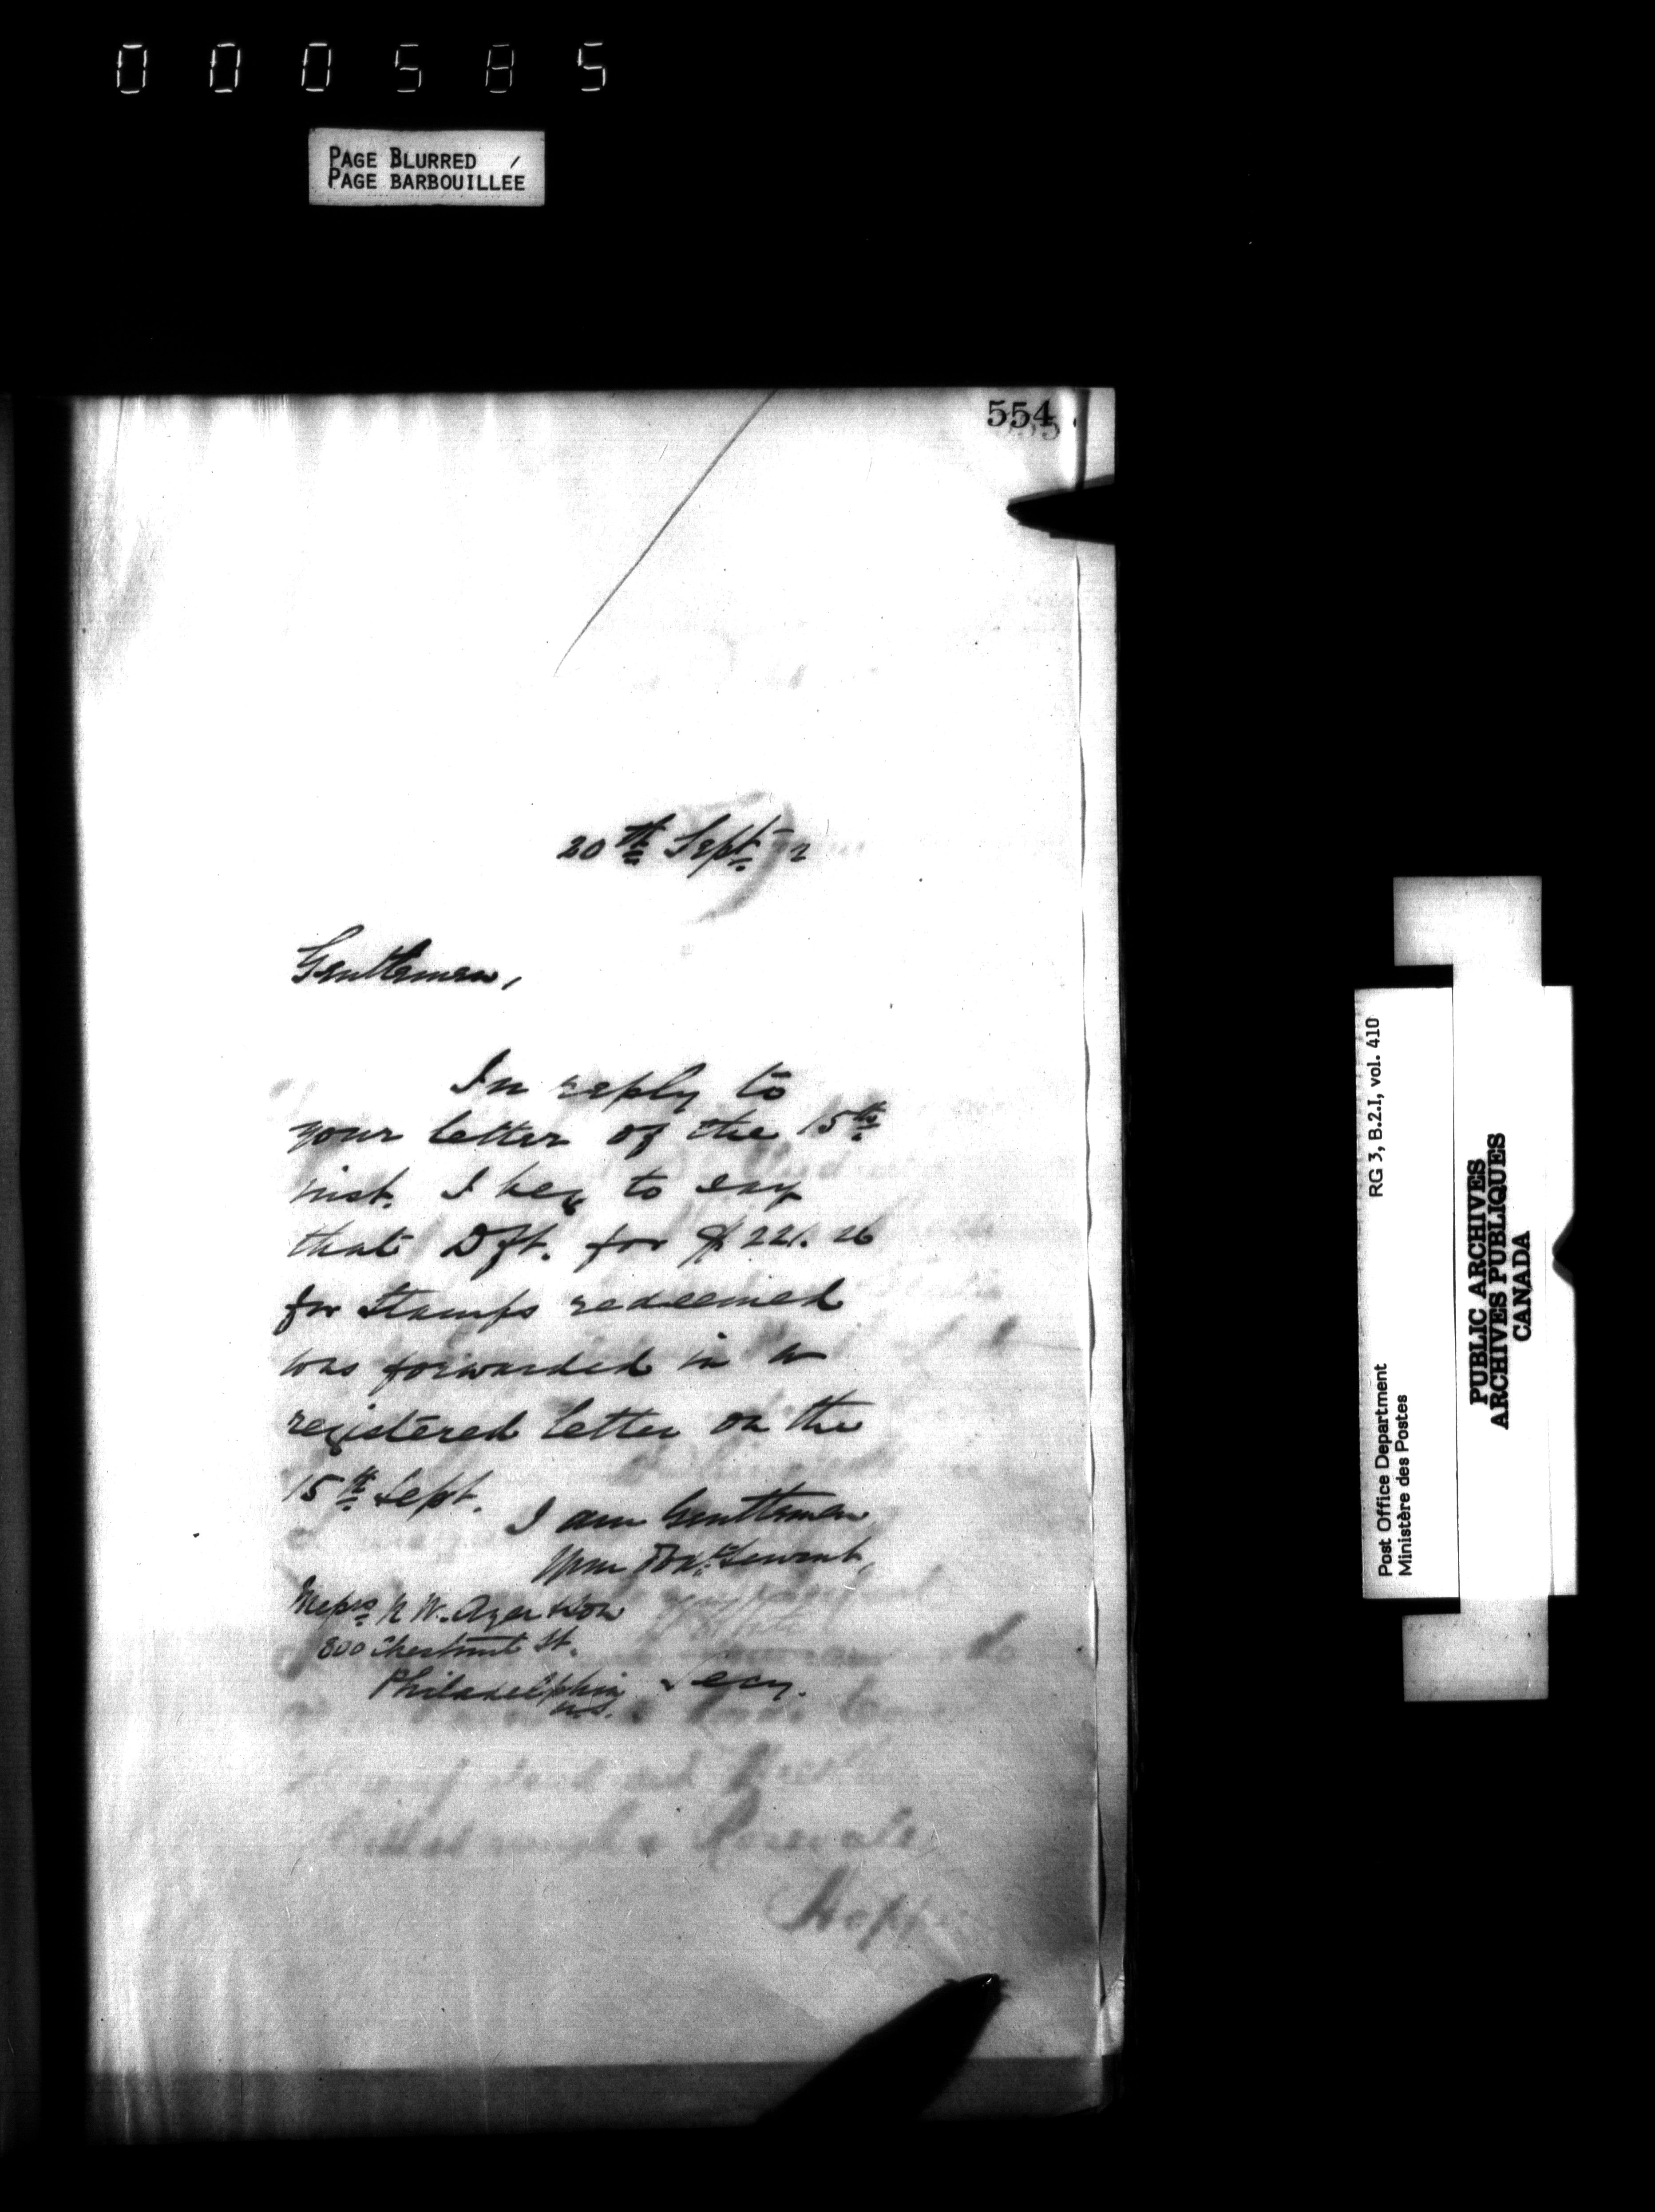 000585
PAGE BLURRED
PAGE BARBOUILLÉE
554
20th Sept. 2
Gentlemen,
In reply to
your letter of the 15th
inst. I beg to say
that Dft. for $221.26
for Stamps redeemed
was forwarded in a
registered letter on the
15th Sept.
I am Gentlemen
Servant,
Messrs N. W. Ayer & Son
800 Chestnut St.
Philadelphia
U.S.
Secy.
Post Office Department RG 3, B.2.I, vol. 410
Ministère des Postes
PUBLIC ARCHIVES
ARCHIVES PUBLIQUES
CANADA